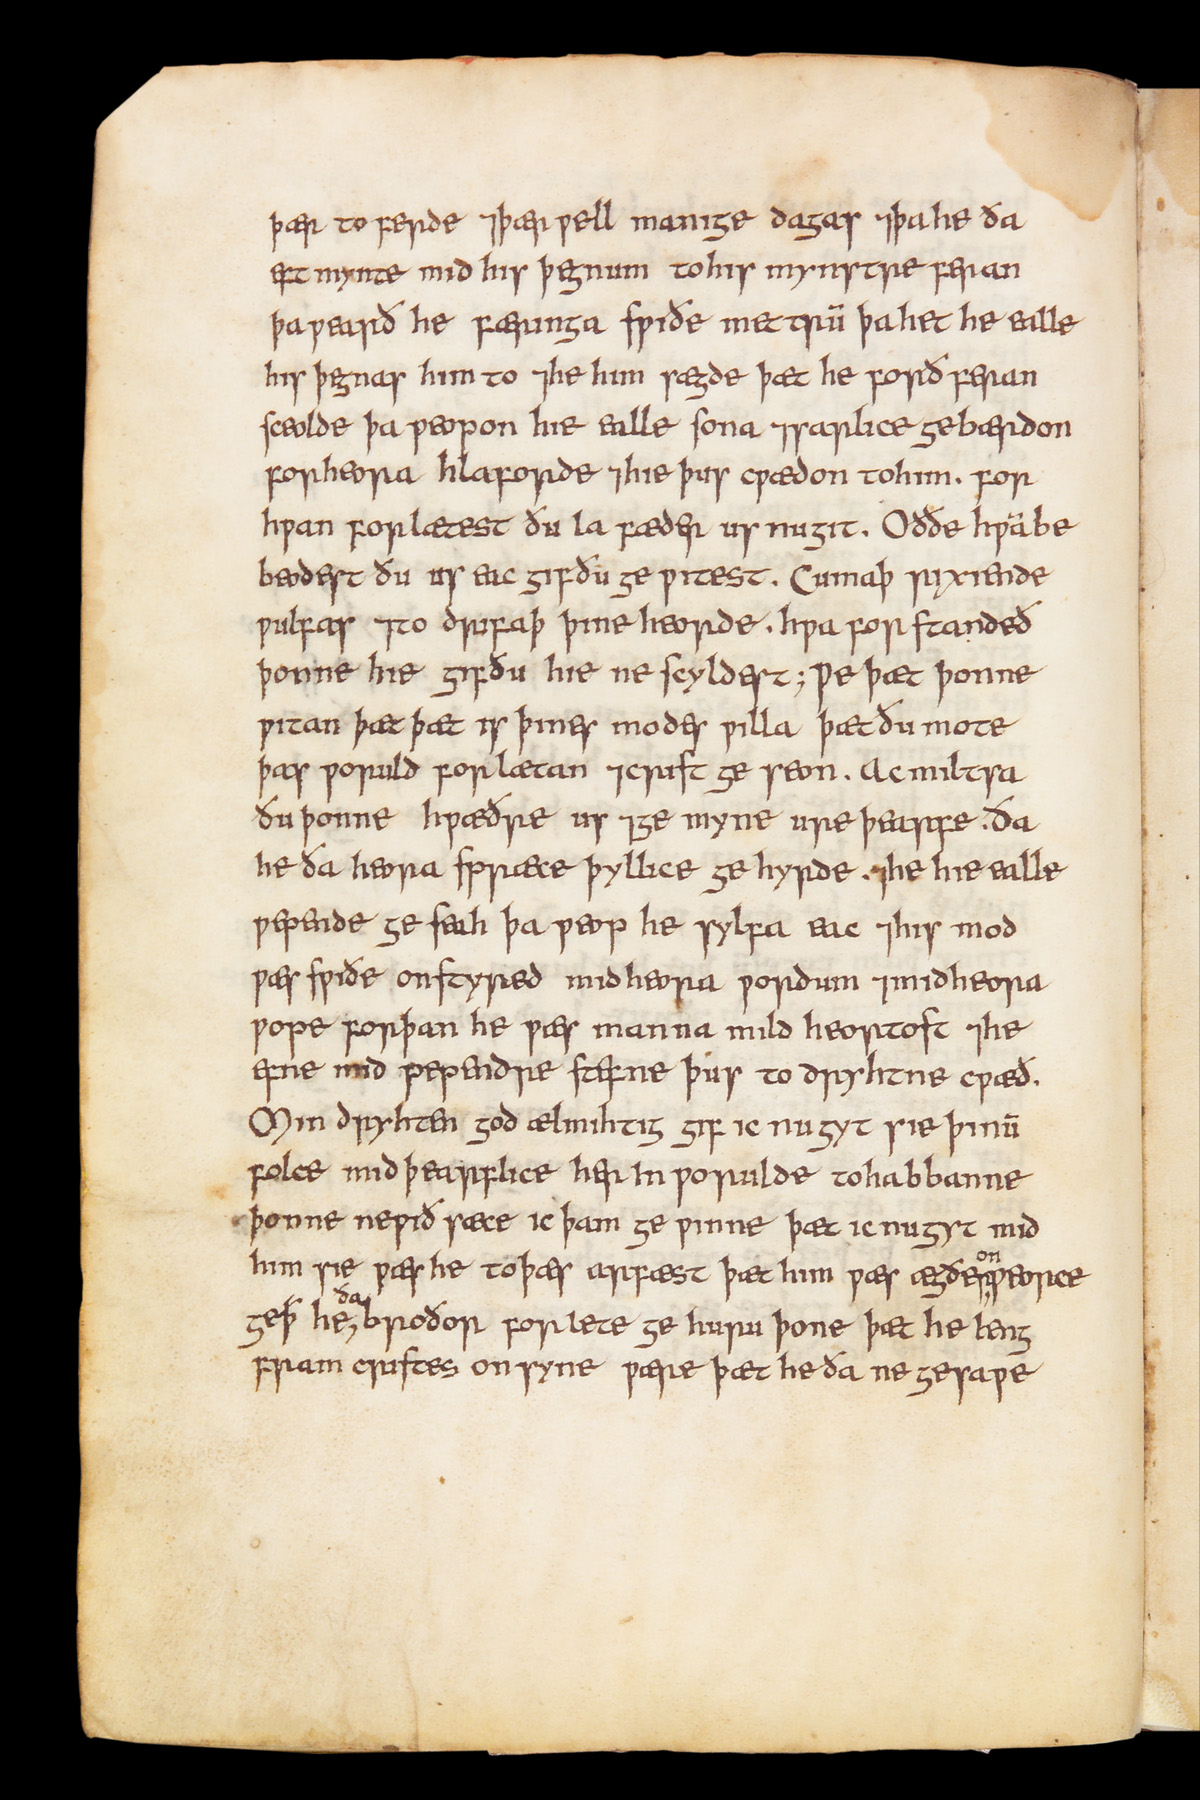 þær to ferde ⁊þær ƿell manige dagas ⁊þa he ða
eft mynte mid his þegnum tohis mynstre feran
þa ƿearð he færinga swiðe met trū þa het he ealle
his þegnas him to ⁊he him sægde þæt he forð feran
sceolde þa ƿeopon hie ealle sona ⁊sarlice gebærdon
forheora hlaforde ⁊hie þus cƿædon tohim. for
hƿan forlætest ðu la fæder us nugit. Oððe hƿā be
beodest ðu us eac gifðu ge ƿitest. Cumaþ rixiende
ƿulfas ⁊to drifaþ þine heorde. hƿa forstandeð
þonne hie gifðu hie ne scyldest; Ƿe þæt þonne
ƿitan þæt þæt is þines modes ƿilla þæt ðu mote
þas ƿoruld forlætan ⁊crist ge seon. Ac miltsa
ðu þonne hƿæðre us ⁊ge myne ure þearfe. ða
he ða heora spræce þyllice ge hyrde. ⁊he hie ealle
ƿepende ge seah þa ƿeop he sylfa eac ⁊his mod
ƿæs sƿiðe onstyred midheora ƿordum ⁊midheora
ƿope forþan he ƿæs manna mild heortost ⁊he
efne mid ƿependre stefne þus to dryhtne cƿæð.
Min dryhten god ælmihtig gif ic nugyt sie þinū
folce midþearflice her in ƿorulde tohabbanne
þonne neƿið sæce ic þam ge ƿinne þæt ic nugyt mid
him sie ƿæs he toþæs arfæst þæt him ƿæs ægðer on ƿeorce
geþ he ða broðor forlete ge huru þone þæt he leng
fram cristes onsyne ƿære þæt he ða ne gesaƿe